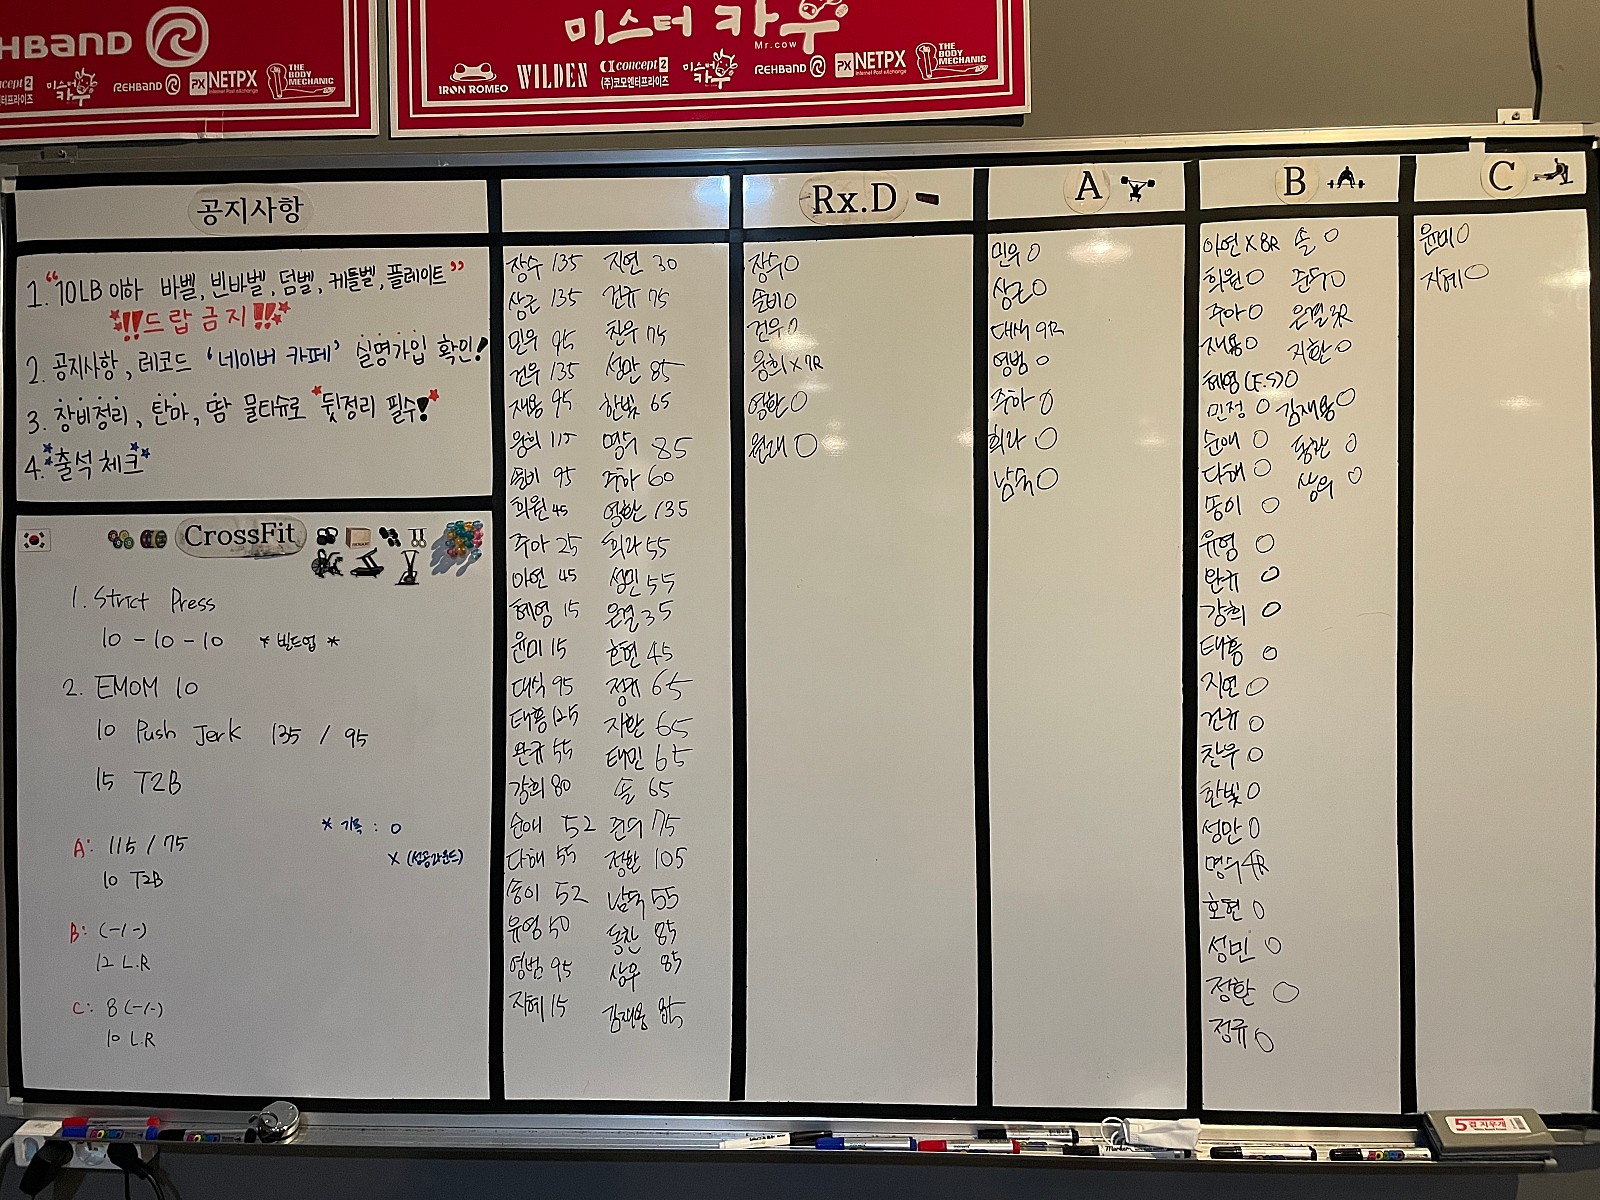 REHBAND
concept2
미스터 카우
REHBAND
PX NETPX
Internet Post eXchange
THE BODY MECHANIC
미스터 카우
Mr.cow
IRON ROMEO
WILDEN
concept2
(주)코모엔터프라이즈
미스터 카우
REHBAND
PX NETPX
Internet Post eXchange
THE BODY MECHANIC
공지사항
1. "10LB 이하 바벨, 빈바벨, 덤벨, 케틀벨, 플레이트"
!!드랍 금지!!
2. 공지사항, 레코드 '네이버 카페' 실명가입 확인!
3. 장비정리, 탄마, 땀 물티슈로 뒷정리 필수!
4. 출석 체크
CrossFit
1. Strict Press
10 - 10 - 10 * 빌드업 *
2. EMOM 10
10 Push Jerk 135 / 95
15 T2B
A: 115 / 75
10 T2B
B: (-/-)
12 L.R
C: 8 (-/-)
10 L.R
* 기록 : O
X (성공라운드)
장수 135
상근 135
민우 95
건우 135
재용 95
웅희 115
솔비 95
희원 45
주아 25
아연 45
혜영 15
윤미 15
대식 95
태흥 125
완규 55
강희 80
순애 52
다해 55
송이 52
유영 50
영범 95
지혜 15
지연 30
건규 75
찬우 75
성만 85
한빛 65
명수 85
주하 60
영환 135
희라 55
성민 55
은결 35
호현 45
정규 65
지환 65
태민 65
솔 65
준덕 75
정환 105
남숙 55
동찬 85
상우 85
김재용 85
Rx.D
장수 O
솔비 O
건우 O
웅희 X 7R
영환 O
원래 O
A
민우 O
상근 O
대식 9R
영범 O
주하 O
희라 O
남숙 O
B
아연 X 8R
희원 O
주아 O
재용 O
혜영 (F.S) O
민정 O
순애 O
다해 O
송이 O
유영 O
완규 O
강희 O
태흥 O
지연 O
건규 O
찬우 O
한빛 O
성만 O
명수 4R
호현 O
성민 O
정환 O
정규 O
솔 O
준덕 O
은결 3R
지환 O
김재용 O
동찬 O
상우 O
C
윤미 O
지혜 O
5겹 지우개